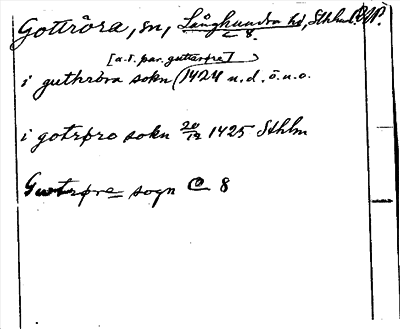 Gottröra, sn, Långhundra hd, Sthlms
C 8.
[a.r. par. gutturfre]
i guthröra sokn (1424 u.d. ö.u.o.
i gotrøro sokn 20/12 1425 Sthlm
sogn C 8